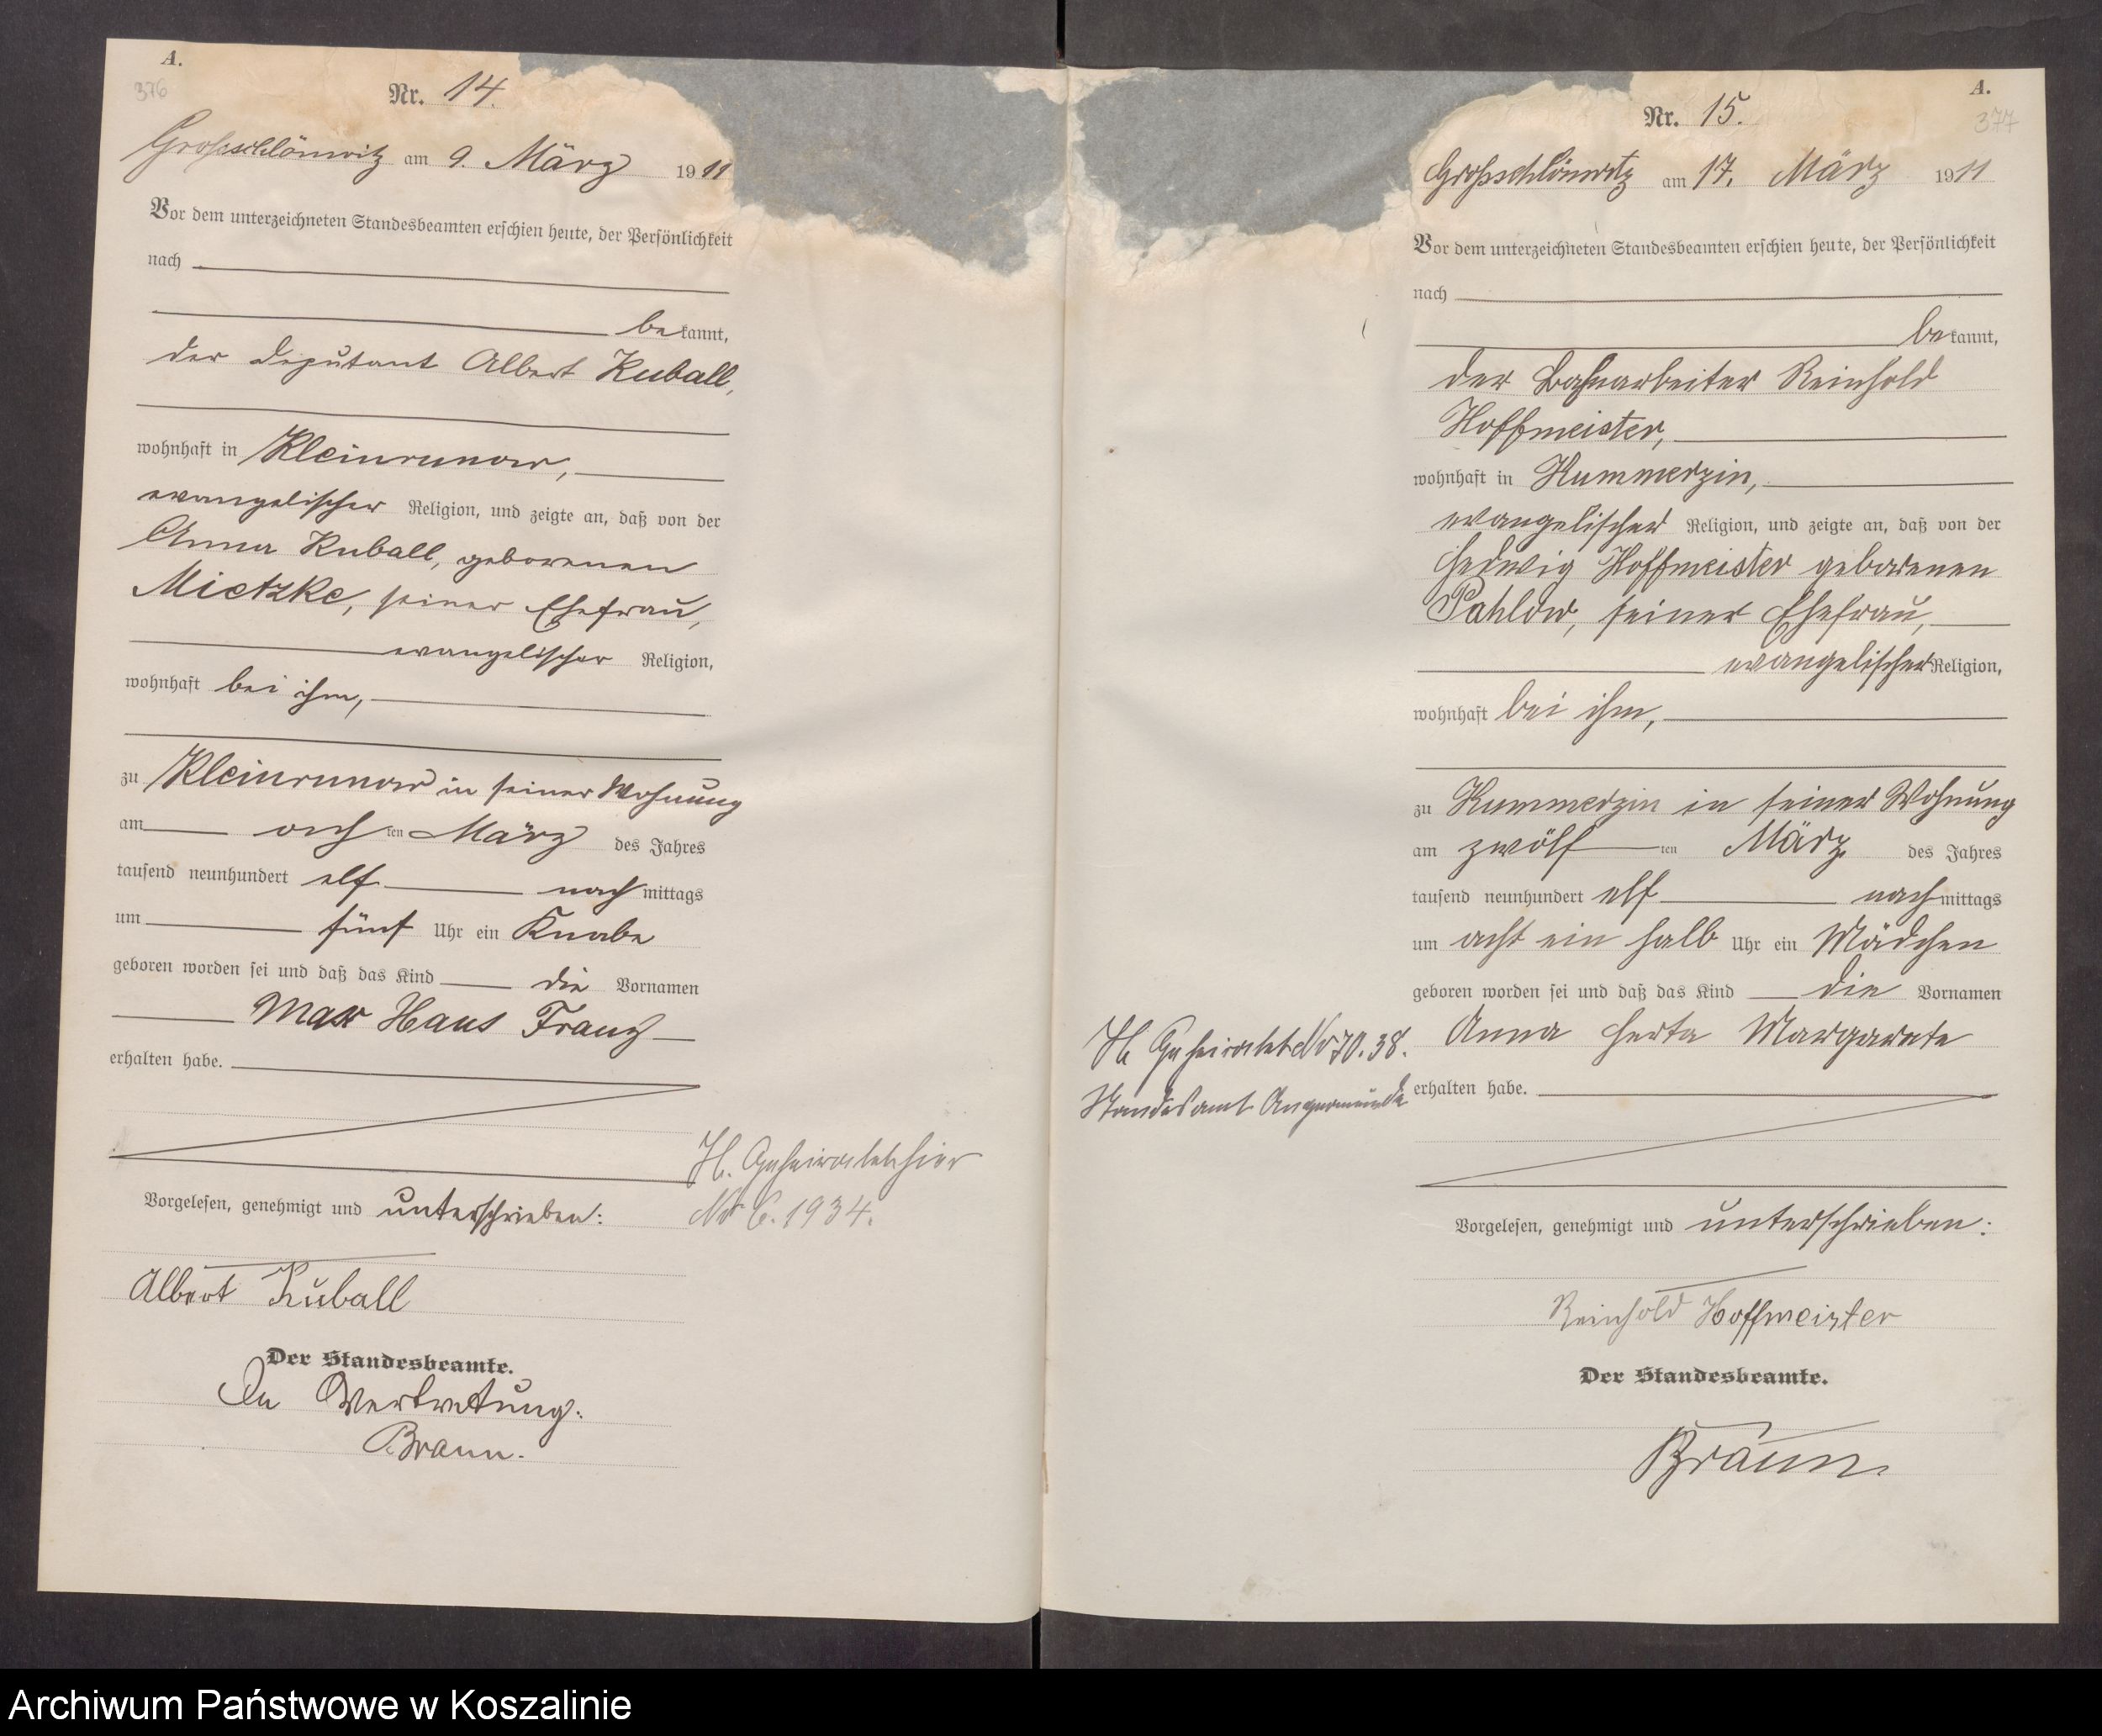 A.
376
Nr. 14.
Großschlönwitz am 9. März 1911
Vor dem unterzeichneten Standesbeamten erschien heute, der Persönlichkeit
nach
bekannt,
der Deputant Albert Kuball,
wohnhaft in Kleinrunow,
evangelischer Religion, und zeigte an, daß von der
Anna Kuball, geborenen
Mietzke, seiner Ehefrau,
evangelischer Religion,
wohnhaft bei ihm,
zu Kleinrunow in seiner Wohnung
am ach ten März des Jahres
tausend neunhundert elf nachmittags
um fünf Uhr ein Knabe
geboren worden sei und daß das Kind die Vornamen
Max Hans Franz
erhalten habe.
H. Geheiratet hier
Nr 6. 1934.
Vorgelesen, genehmigt und unterschrieben:
Albert Kuball
Der Standesbeamte.
In Vertretung:
Braun.
A.
377
Nr. 15.
Großschlönwitz am 17. März 1911
Vor dem unterzeichneten Standesbeamten erschien heute, der Persönlichkeit
nach
bekannt,
der Bahnarbeiter Reinhold
Hoffmeister,
wohnhaft in Kummerzin,
evangelischer Religion, und zeigte an, daß von der
Hedwig Hoffmeister geborenen
Pahlow, seiner Ehefrau,
evangelischer Religion,
wohnhaft bei ihm,
zu Kummerzin in seiner Wohnung
am zwölf ten März des Jahres
tausend neunhundert elf nachmittags
um acht ein halb Uhr ein Mädchen
geboren worden sei und daß das Kind die Vornamen
Anna Herta Margarete
erhalten habe.
H. Geheiratet Nr 70. 38.
Standesamt Angermünde
Vorgelesen, genehmigt und unterschrieben:
Reinhold Hoffmeister
Der Standesbeamte.
Braun.
Archiwum Państwowe w Koszalinie